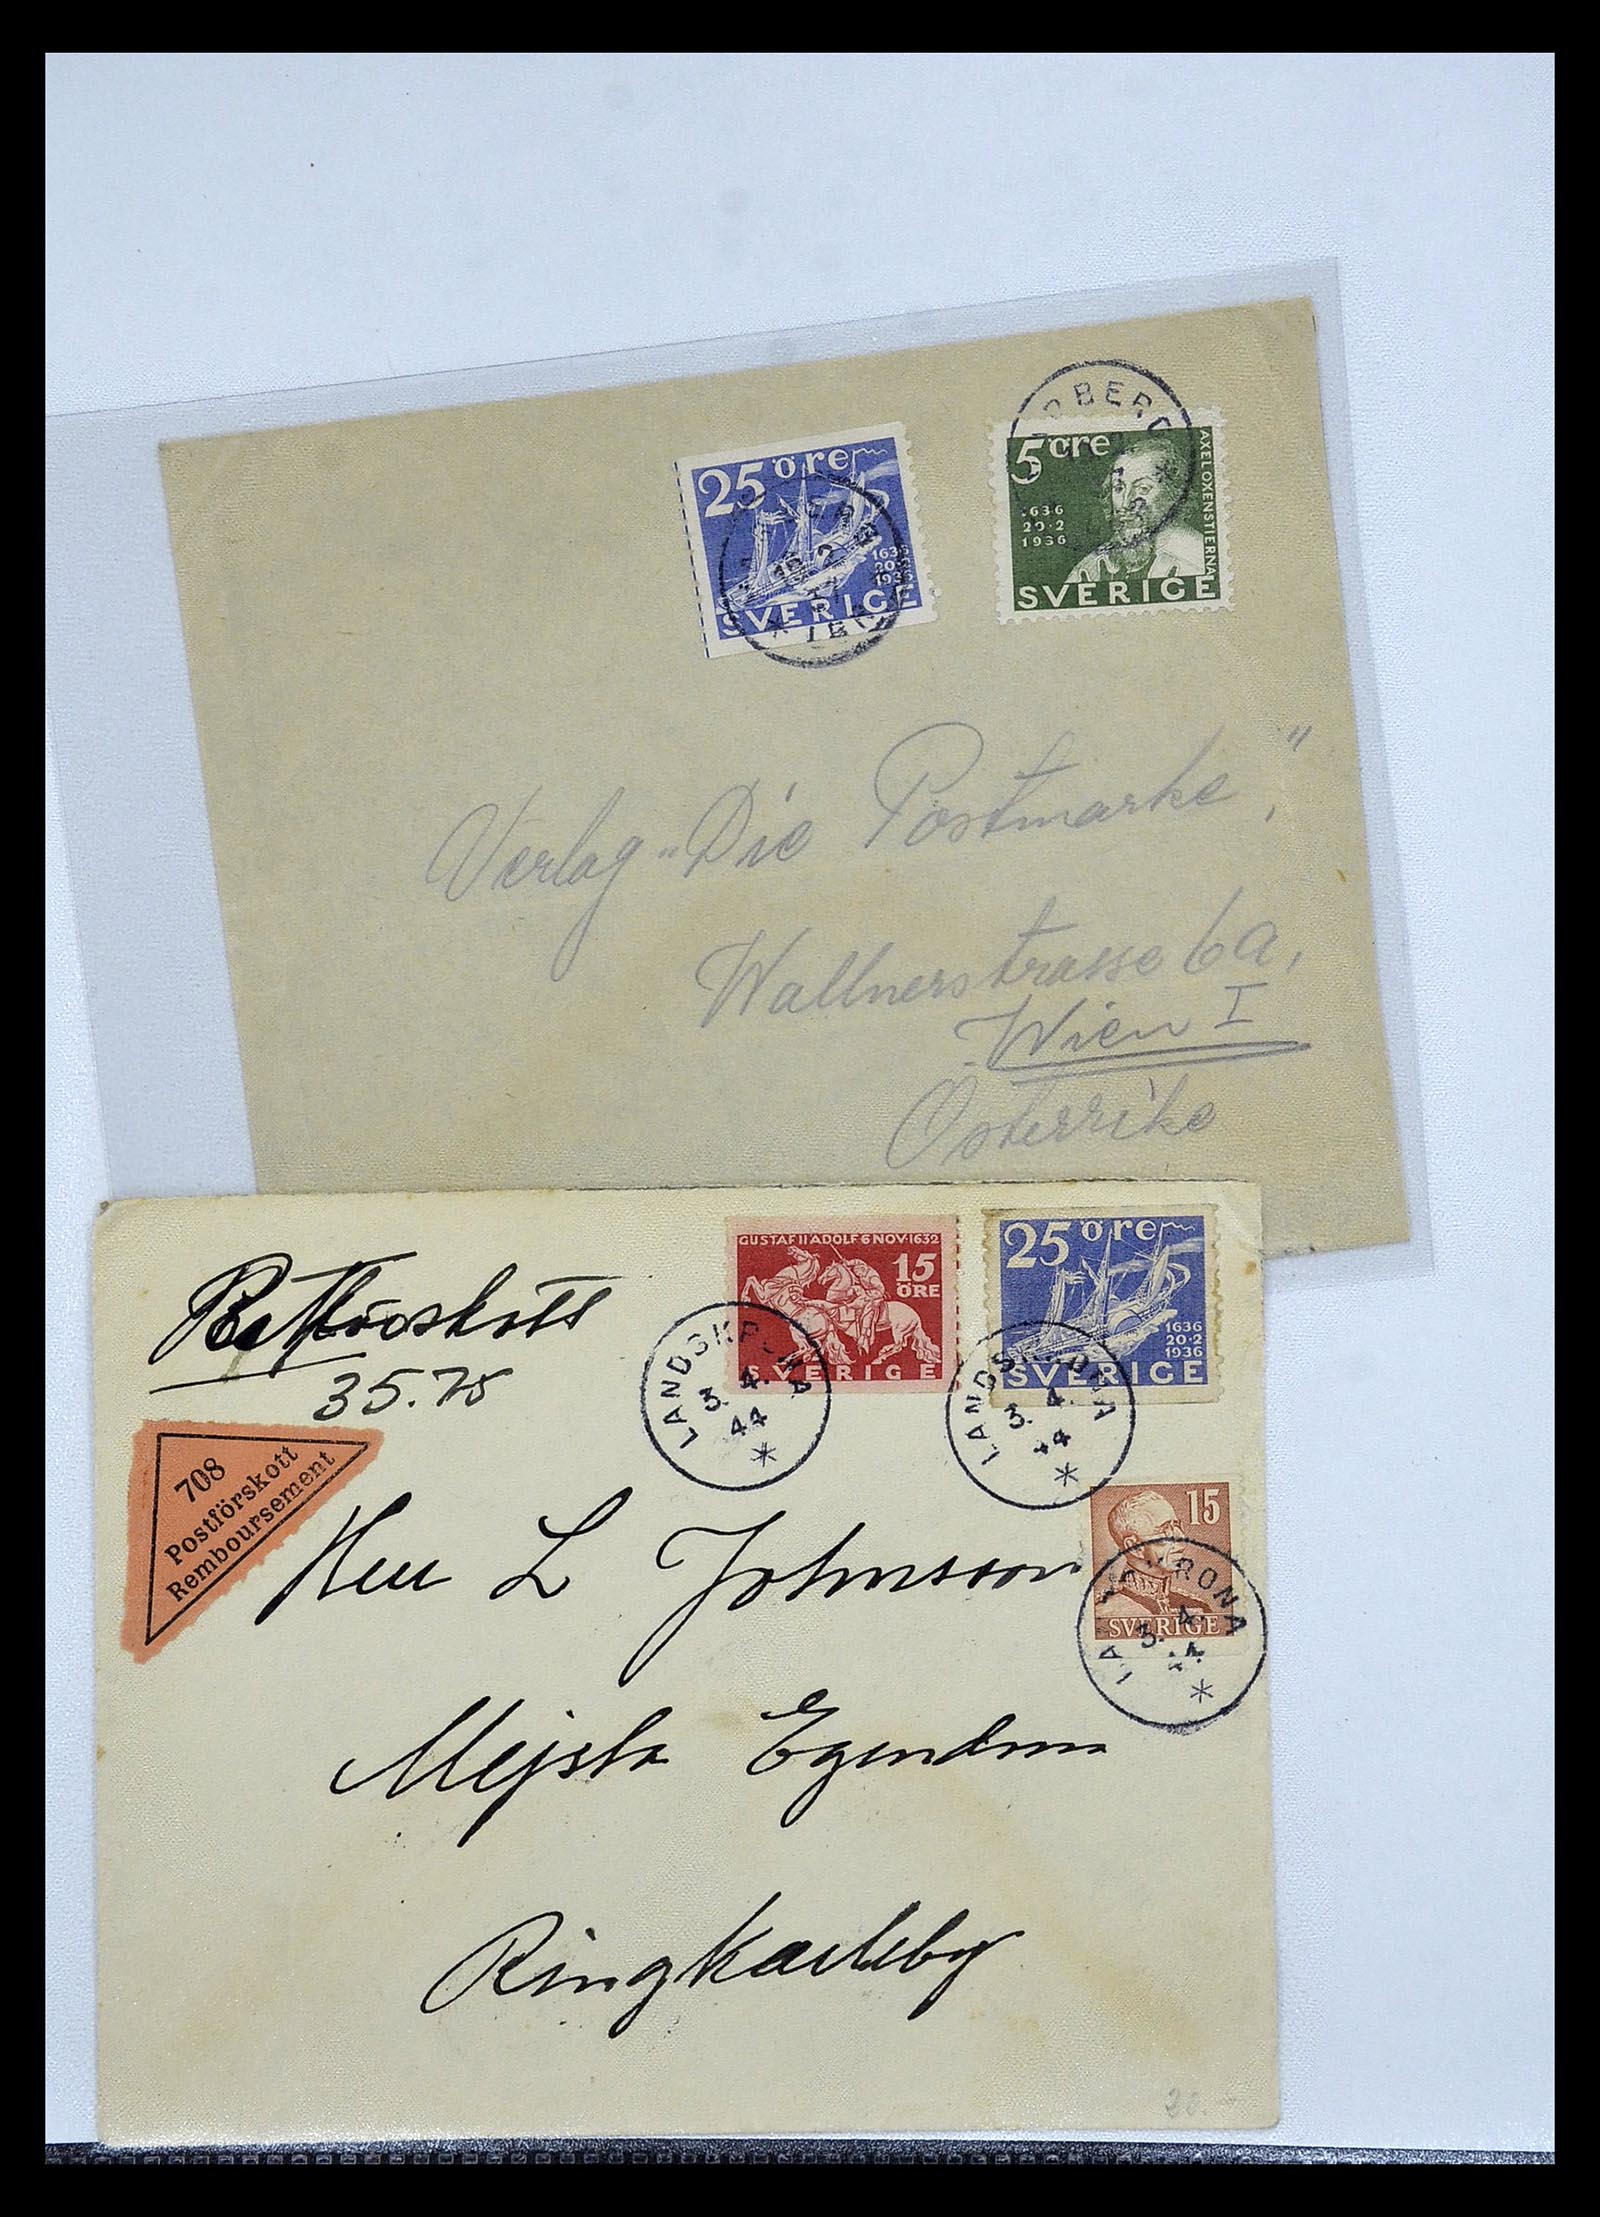 25 öre
1636
20·2
1936
SVERIGE
5 öre
AXEL OXENSTIERNA
1636
20·2
1936
SVERIGE
Verlag „Die Postmarke",
Wallnerstrasse 6a,
Wien I
Österrike
35.75
708
Postförskott
Remboursement
GUSTAF II ADOLF 6 NOV·1632
15
ÖRE
SVERIGE
LANDSKRONA
3. 4.
44
25 öre
1636
20·2
1936
SVERIGE
LANDSKRONA
3. 4.
44
15
SVERIGE
LANDSKRONA
3. 4.
44
Herr L Johnsson
Mejsta Egendom
Ringkarleby